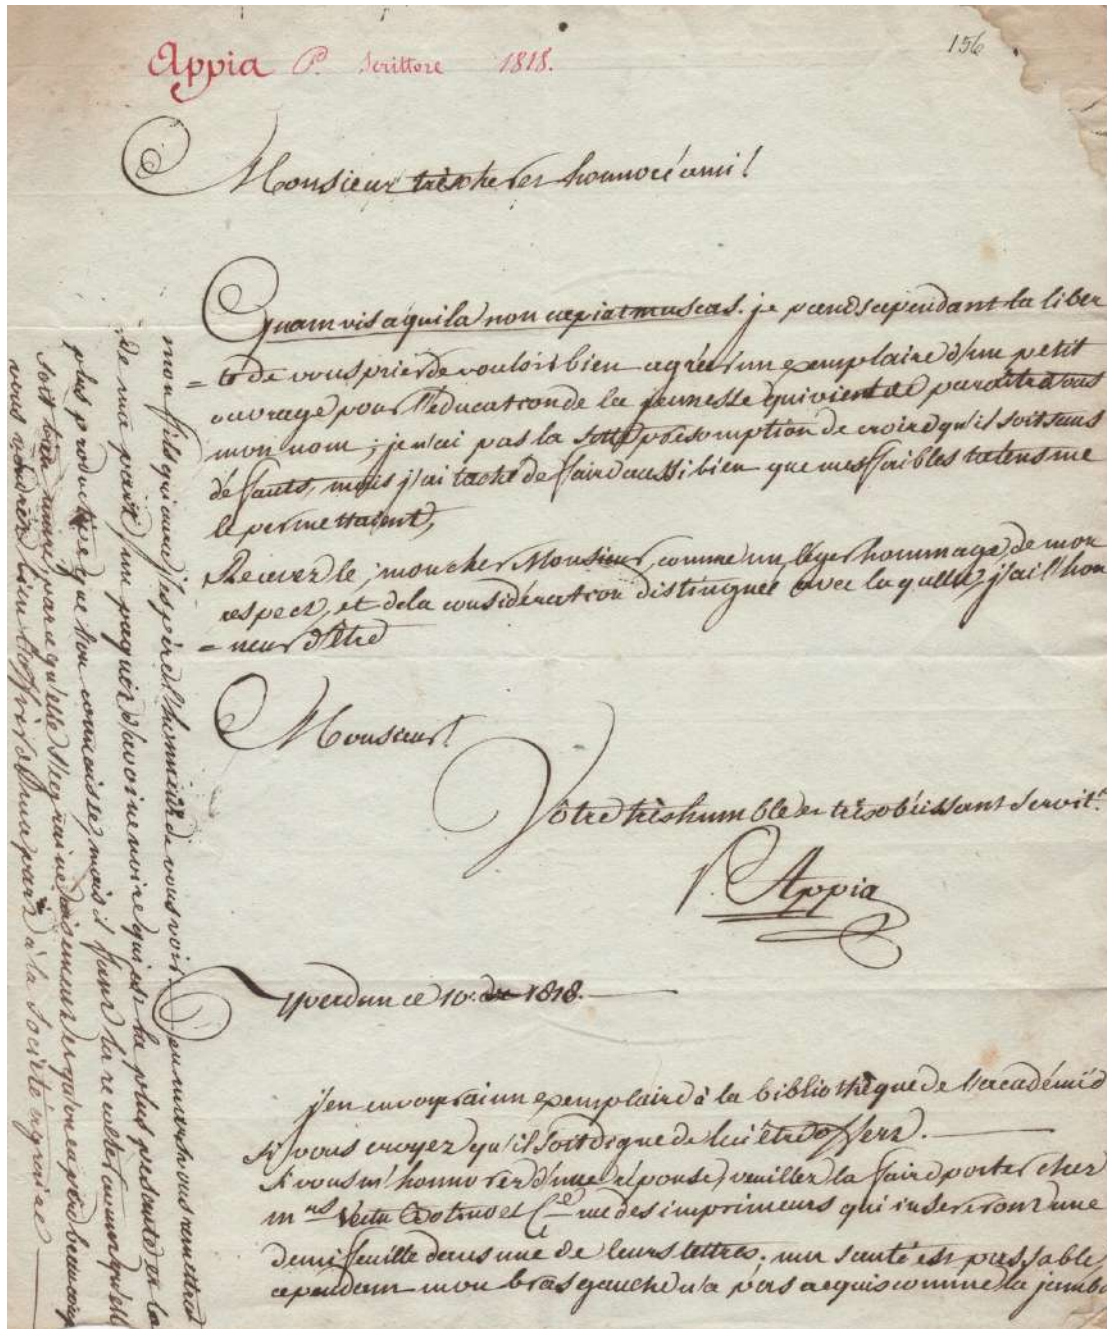 156
Appia P. Scrittore 1818.
Monsieur très cher et honnoré ami!
Quamvis aquila non capiat muscas. je prends cependant la liber
= té de vous prier de vouloir bien agréer un exemplaire d'un petit
ouvrage pour l'éducation de la jeunesse qui vient de paraître sous
mon nom; je n'ai pas la sotte présomption de croire qu'il soit sans
défauts, mais j'ai taché de faire aussi bien que mes faibles talens me
le permettaient,
Recevez le, mon cher Monsieur, comme un léger hommage de mon
respect, et de la considération distinguée avec laquelle j'ai l'hon
= neur d'être
Monsieur!
Vôtre très humble et très obéissant servit.r
P. Appia
Yverdun ce 10. 1818.
j'en envoyrai un exemplaire à la bibliothèque de l'académie
si vous croyez qu'il soit digne de lui être offert.
si vous m'honnorez d'une réponse, veuillez la faire porter chez
m.rs et C.ie rue des imprimeurs qui insereront une
demi feuille dans une de leurs lettres; ma santé est passable,
cependant mon bras gauche n'a pas acquis comme la jambe
mon fils qui aura j'espère l'honneur de vous voir en vous remettra
de ma part un paquet d'avoine noire qui est la plus pesante et la
plus productive que l'on connaisse, mais il faut la recolter avant qu'elle
soit bien mure, parce qu'elle s'égraine aisément et qu'on en perd beaucoup
vous voudrez bien l'offrir de ma part à la Société agraire